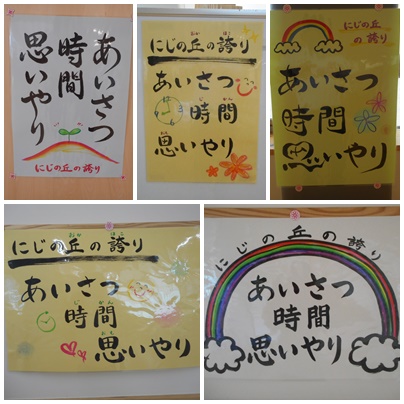 あいさつ
時間
思いやり
にじの丘の誇り
にじの丘の誇り
あいさつ
時間
思いやり
にじの丘
の誇り
あいさつ
時間
思いやり
にじの丘の誇り
あいさつ
時間
思いやり
にじの丘の誇り
あいさつ
時間
思いやり